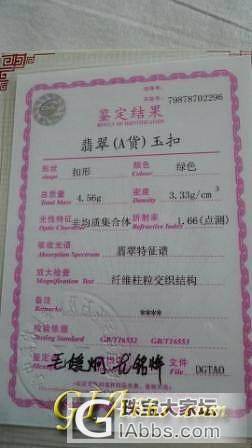 79878702296
鉴定结果
RESULT OF IDENTIFICATION
翡翠(A货)玉扣
形状 shape 扣形 颜色 Colour 绿色
总质量 Total Mass 4.56g 密度 Density 3.33g/cm³
光性特征 Optic Character 非均质集合体 折射率 Refractive Index 1.66(点测)
吸收光谱 Absorption Spectrum 翡翠特征谱
放大检查 Magnification Test 纤维柱粒交织结构
备注 Remarks ****
检验依据 Testing Standard GB/T16552 GB/T16553
文件 File DGTAO
珠宝大家坛